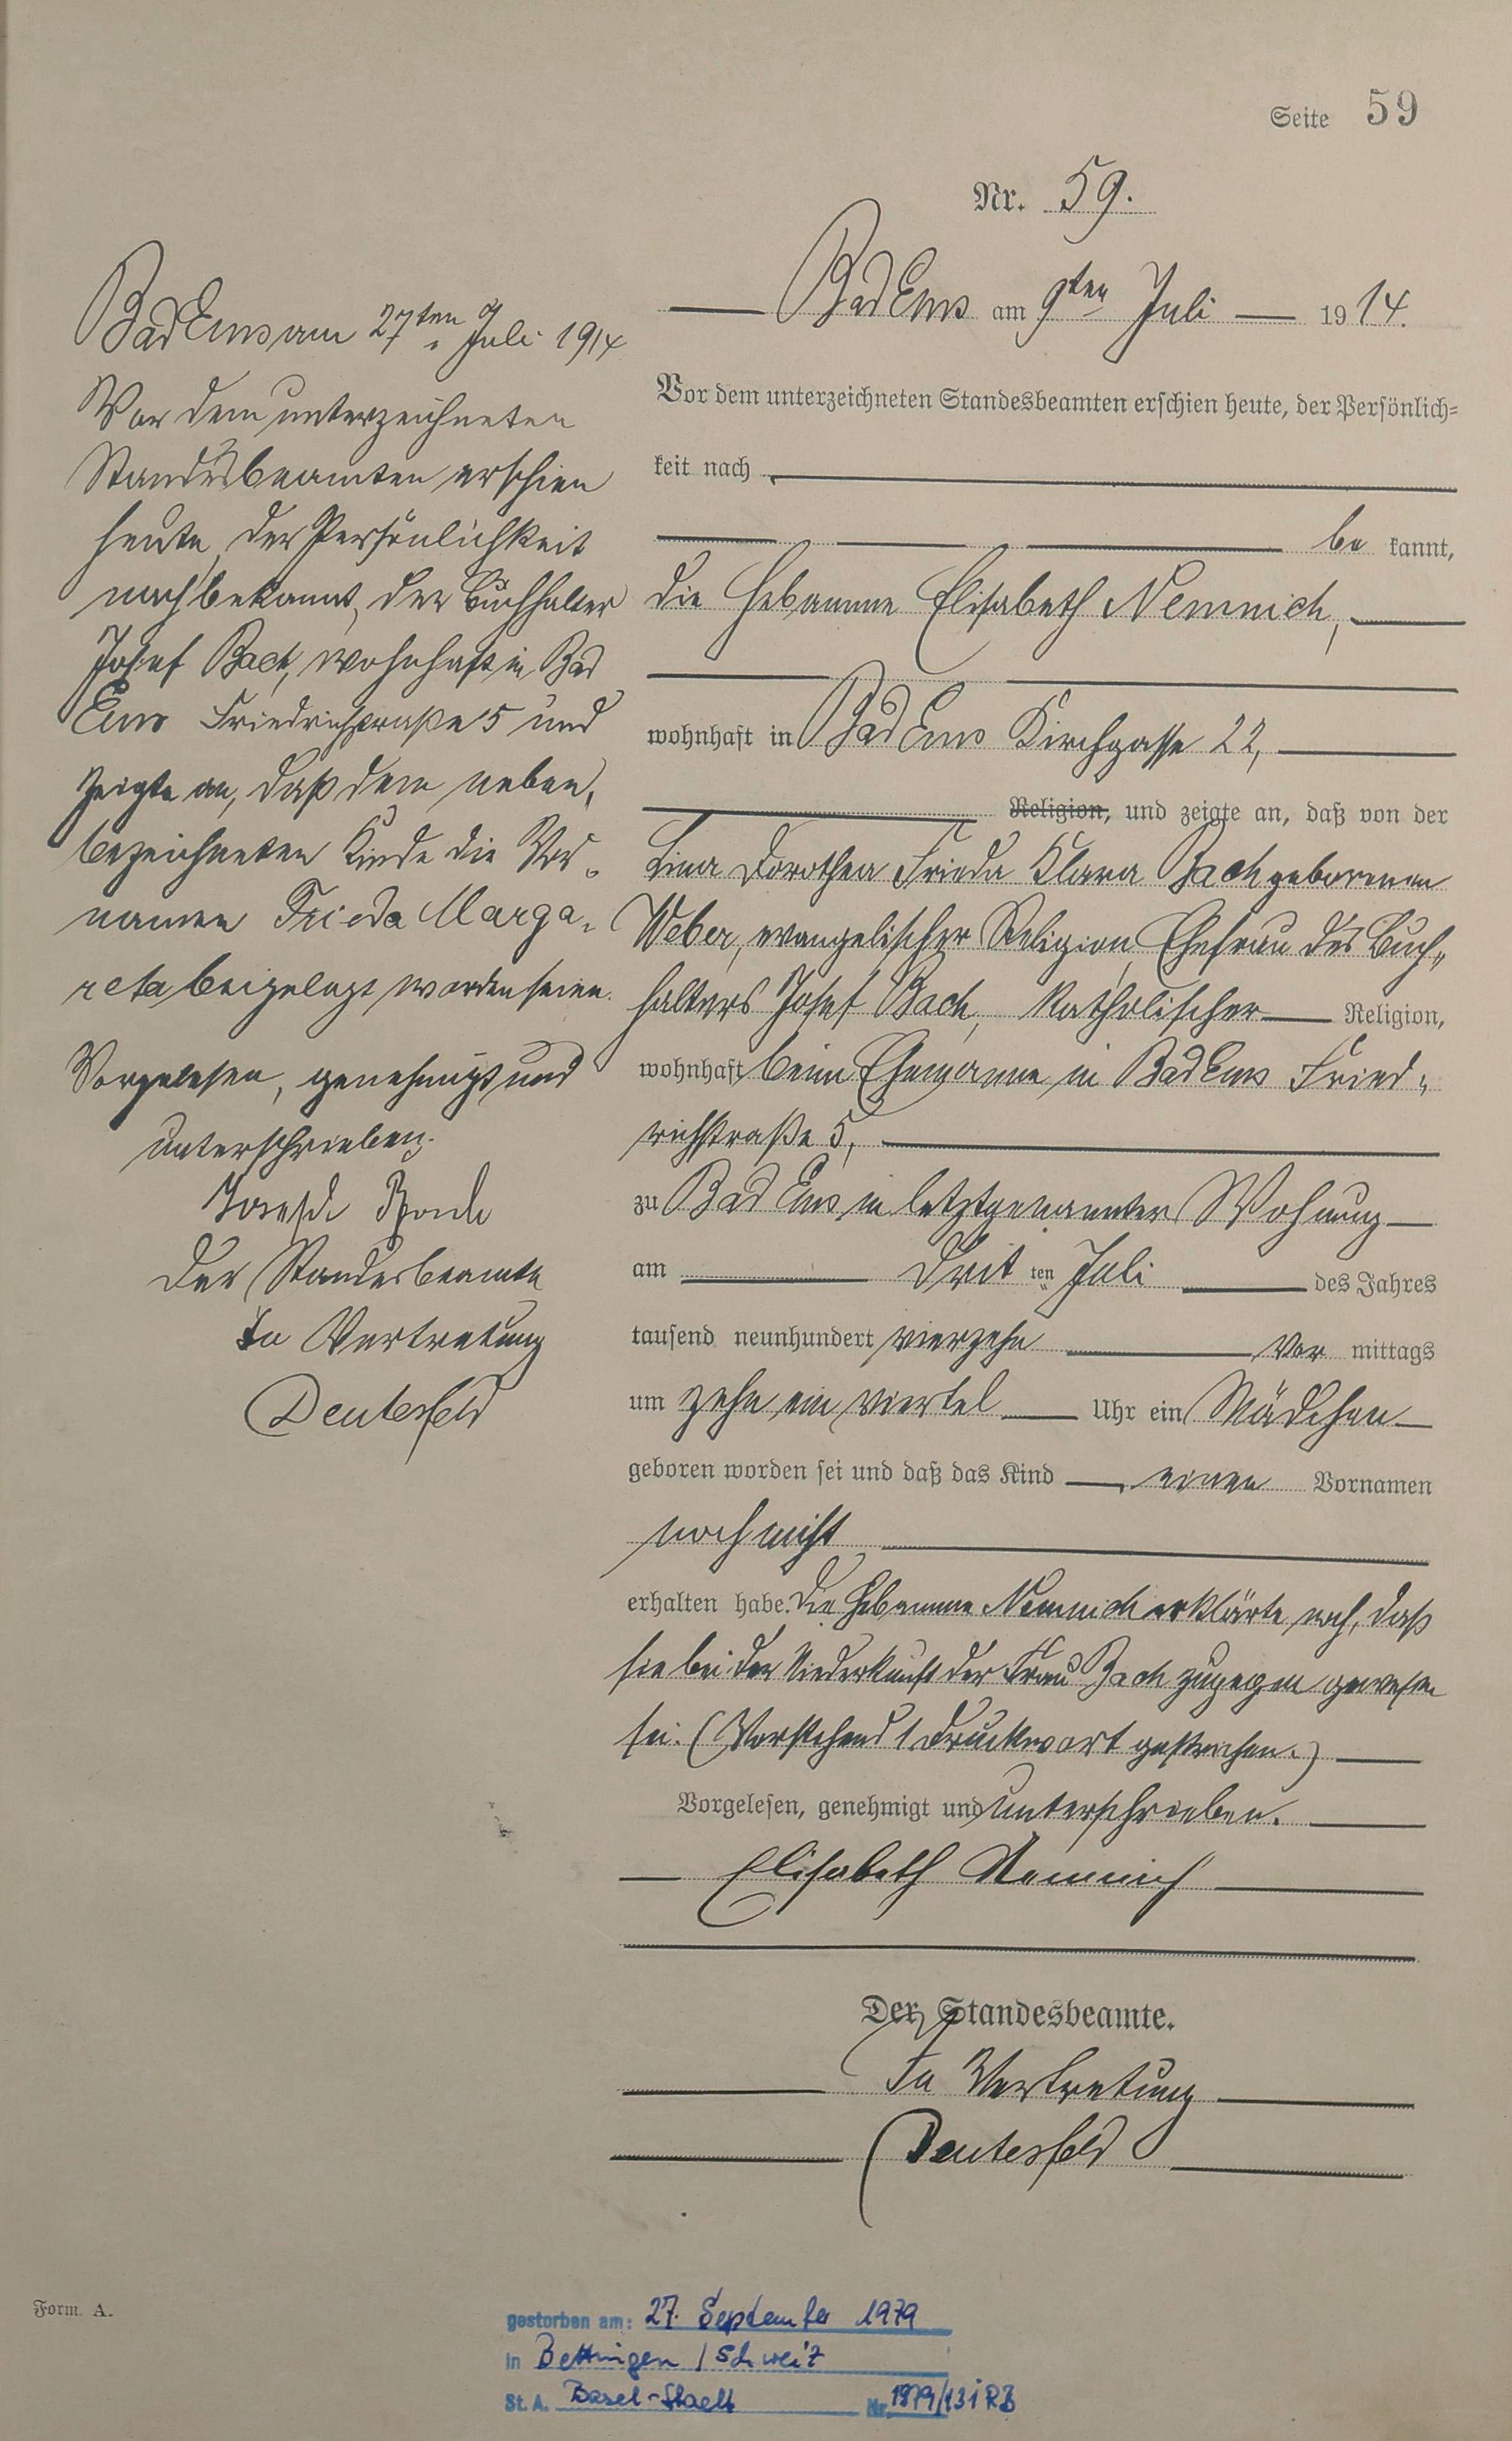 Seite 59
Nr. 59.
Bad Ems am 9ten Juli 1914.
Vor dem unterzeichneten Standesbeamten erschien heute, der Persönlich=
keit nach
be kannt,
die Hebamme Elisabeth Nemnich,
wohnhaft in Bad Ems Kirchgasse 22,
Religion, und zeigte an, daß von der
Lina Dorothea Frieda Klara Bach geborenen
Weber, evangelischer Religion, Ehefrau des Buch„
halters Josef Bach, katholischer Religion,
wohnhaft beim Ehemanne in Bad Ems Fried„
richstraße 5,
zu Bad Ems in letztgenannter Wohnung
am Drit ten Juli des Jahres
tausend neunhundert vierzehn Vor mittags
um zehn ein viertel Uhr ein Mädchen
geboren worden sei und daß das Kind einen Vornamen
noch nicht
erhalten habe. Die Hebamme Nemnich erklärte noch, daß
sie bei der Niederkunft der Frau Bach zugegen gewesen
sei. (Vorstehend 1 Druckwort gestrichen.)
Vorgelesen, genehmigt und unterschrieben.
Elisabeth Nemnich
Der Standesbeamte.
In Vertretung
Deutesfeld
Bad Ems am 27ten Juli 1914
Vor dem unterzeichneten
Standesbeamten erschien
heute, der Persönlichkeit
nach bekannt, der Buchhalter
Josef Bach, wohnhaft in Bad
Ems Friedrichstraße 5 und
zeigte an, daß dem neben„
bezeichneten Kinde die Vor„
namen Frieda Marga„
reta beigelegt worden seien.
Vorgelesen, genehmigt und
unterschrieben.
Joseph Bach
Der Standesbeamte
In Vertretung
Deutesfeld
Form. A.
gestorben am: 27. September 1979
in Bettingen / Schweiz
St. A. Basel-Stadt Nr. 1979/131 RB